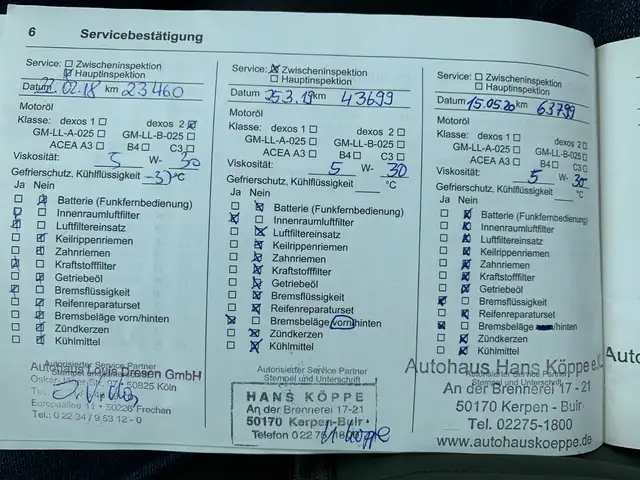 6 Servicebestätigung
Service: Zwischeninspektion
Hauptinspektion
Datum 22.02.18 km 23460
Motoröl
Klasse: dexos 1 dexos 2
GM-LL-A-025 GM-LL-B-025
ACEA A3 B4 C3
Viskosität: 5 W- 30
Gefrierschutz, Kühlflüssigkeit °C
Ja Nein
Batterie (Funkfernbedienung)
Innenraumluftfilter
Luftfiltereinsatz
Keilrippenriemen
Zahnriemen
Kraftstofffilter
Getriebeöl
Bremsflüssigkeit
Reifenreparaturset
Bremsbeläge vorn/hinten
Zündkerzen
Kühlmittel
Autorisierter Service Partner
Stempel und
Autohaus Louis Dresen GmbH
50825 Köln
Europaallee 50226 Frechen
Tel.: 0 22 34 / 9 53 12 - 0
Service: Zwischeninspektion
Hauptinspektion
Datum 25.3.19 km 43699
Motoröl
Klasse: dexos 1 dexos 2
GM-LL-A-025 GM-LL-B-025
ACEA A3 B4 C3
Viskosität: 5 W- 30
Gefrierschutz, Kühlflüssigkeit °C
Ja Nein
Batterie (Funkfernbedienung)
Innenraumluftfilter
Luftfiltereinsatz
Keilrippenriemen
Zahnriemen
Kraftstofffilter
Getriebeöl
Bremsflüssigkeit
Reifenreparaturset
Bremsbeläge vorn/hinten
Zündkerzen
Kühlmittel
Autorisierter Service Partner
Stempel und Unterschrift
HANS KÖPPE
An der Brennerei 17-21
50170 Kerpen-Buir
Telefon 02275
Service: Zwischeninspektion
Hauptinspektion
Datum 15.05.20 km 63799
Motoröl
Klasse: dexos 1 dexos 2
GM-LL-A-025 GM-LL-B-025
ACEA A3 B4 C3
Viskosität: 5 W- 30
Gefrierschutz, Kühlflüssigkeit °C
Ja Nein
Batterie (Funkfernbedienung)
Innenraumluftfilter
Luftfiltereinsatz
Keilrippenriemen
Zahnriemen
Kraftstofffilter
Getriebeöl
Bremsflüssigkeit
Reifenreparaturset
Bremsbeläge /hinten
Zündkerzen
Kühlmittel
Autorisierter Service Partner
Stempel und Unterschrift
Autohaus Hans Köppe e.K.
An der Brennerei 17 - 21
50170 Kerpen - Buir
Tel. 02275-1800
www.autohauskoeppe.de
Auto
An